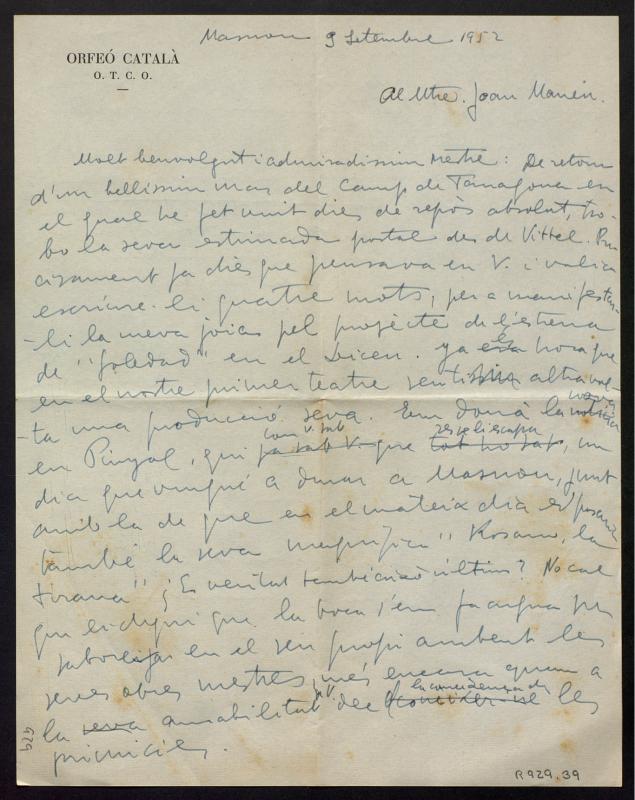 Masnou 9 Setembre 1952
ORFEÓ CATALÀ
O. T. C. O.
Al Mtre. Joan Manén.
Molt benvolgut i admiradissim Mestre: De retorn
d'un bellissim mas del Camp de Tarragona en
el qual he fet vuit dies de repòs absolut, tro-
bo la seva estimada postal des de Vittel. Pre
cisament fa dies que pensava en V. i volia
escriure-li quatre mots, per a manifestar-
-li la meva joia pel projecte de l'estrena
de "Soledad" en el Liceu. Ja és hora que
en el nostre primer teatre sentissim altra vol-
ta una producció seva. Em donà la nova
en Pinyol, qui com V. sab ja sab V. que res se li escapa tot ho sap, un
dia que vingué a dinar a Masnou, junt
amb la de que en el mateix dia es posaria
també la seva magnífica "Rosario, la
tirana" ¿Es veritat també això últim? No cal
que li digui que la boca s'em fa aigua per
saborejar en el seu propi ambent les
seves obres mestres, més encara quan a
la seva amabilitat dec la coneixença de les
primicies.
929
R929.39